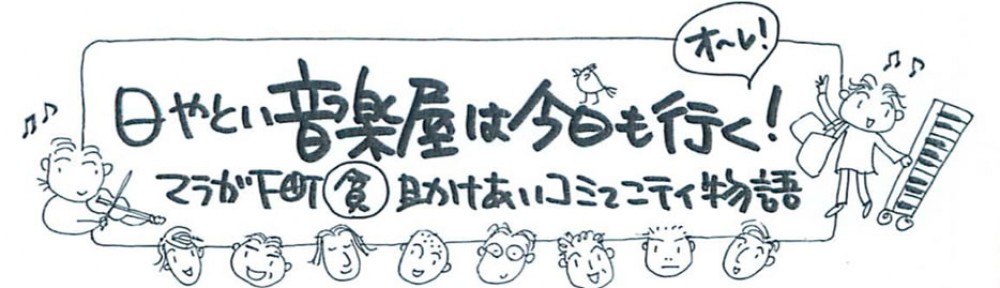 オ〜レ!
日やとい音楽屋は今日も行く!
マラガ下町 貧 助けあいコミュニティ物語